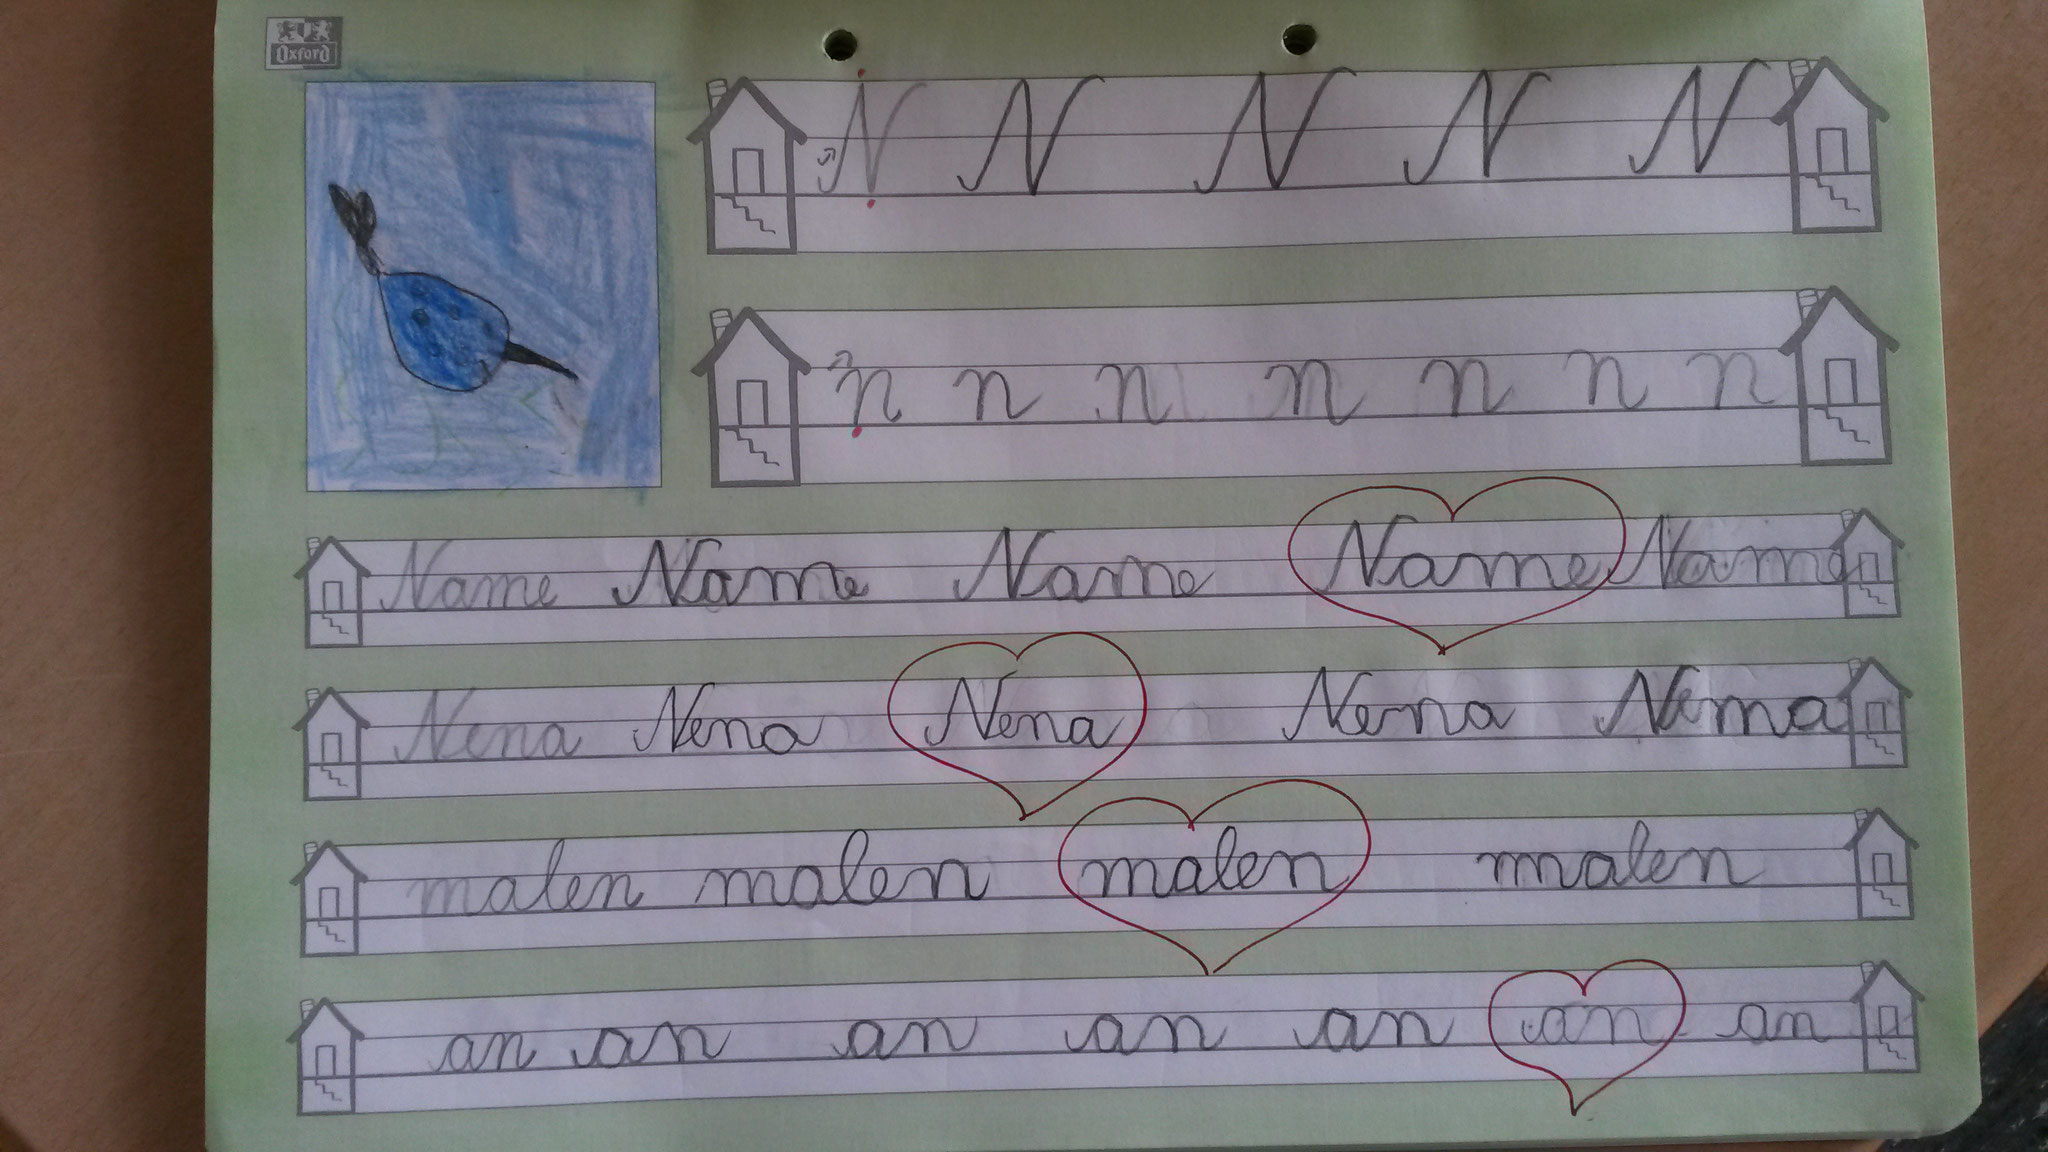 Oxford
N N N N N
n n n n n n n
Name Name Name Name Name
Nena Nena Nena Nena Nema
malen malen malen malen
an an an an an an an